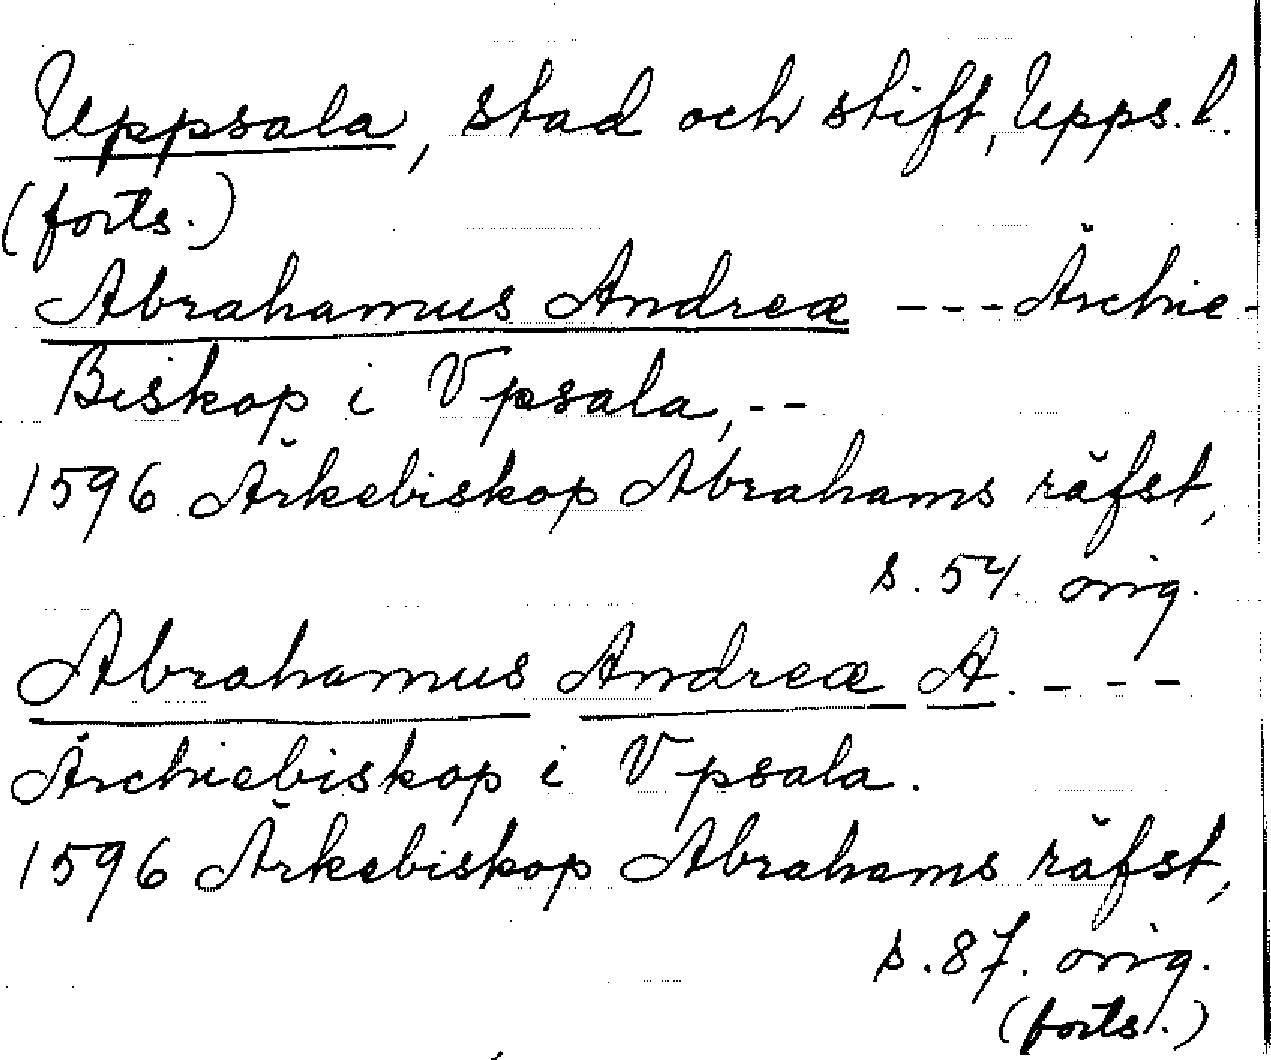 Uppsala, stad och stift, Upps. l.
(forts.)
Abrahamus Andreæ --- Ärchie-
Biskop i Vpsala, --
1596 Ärkebiskop Abrahams räfst,
s. 54. orig.
Abrahamus Andreæ A. ---
Ärchiebiskop i Vpsala.
1596 Ärkebiskop Abrahams räfst,
s. 87. orig.
(forts.)